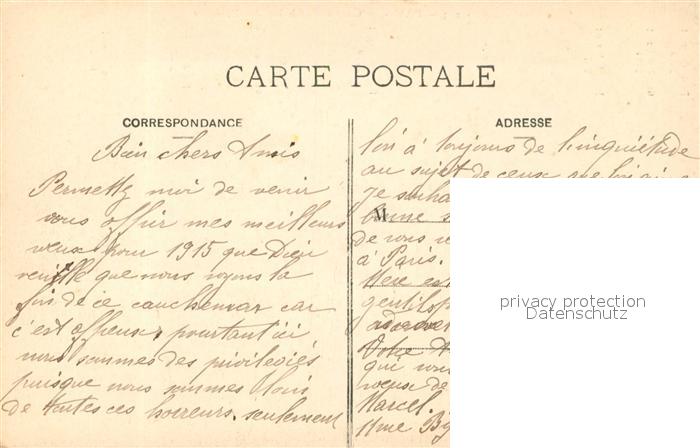 CARTE POSTALE
CORRESPONDANCE
Bien chers Amis
Permettez moi de venir
vous offrir mes meilleurs
vœux pour 1915 que Dieu
veuille que nous voyons la
fin de ce cauchemar car
c'est affreux, pourtant ici
nous sommes des privilegiés
puisque nous sommes loin
de toutes ces horreurs. seulement
ADRESSE
l'on à toujours de l'inquiétude
au sujet de ceux que l'on
Je
M
bonne
de vous
à Paris.
Mère

Votre
qui vous
vœux de
Marcel.
Mme
privacy protection
Datenschutz